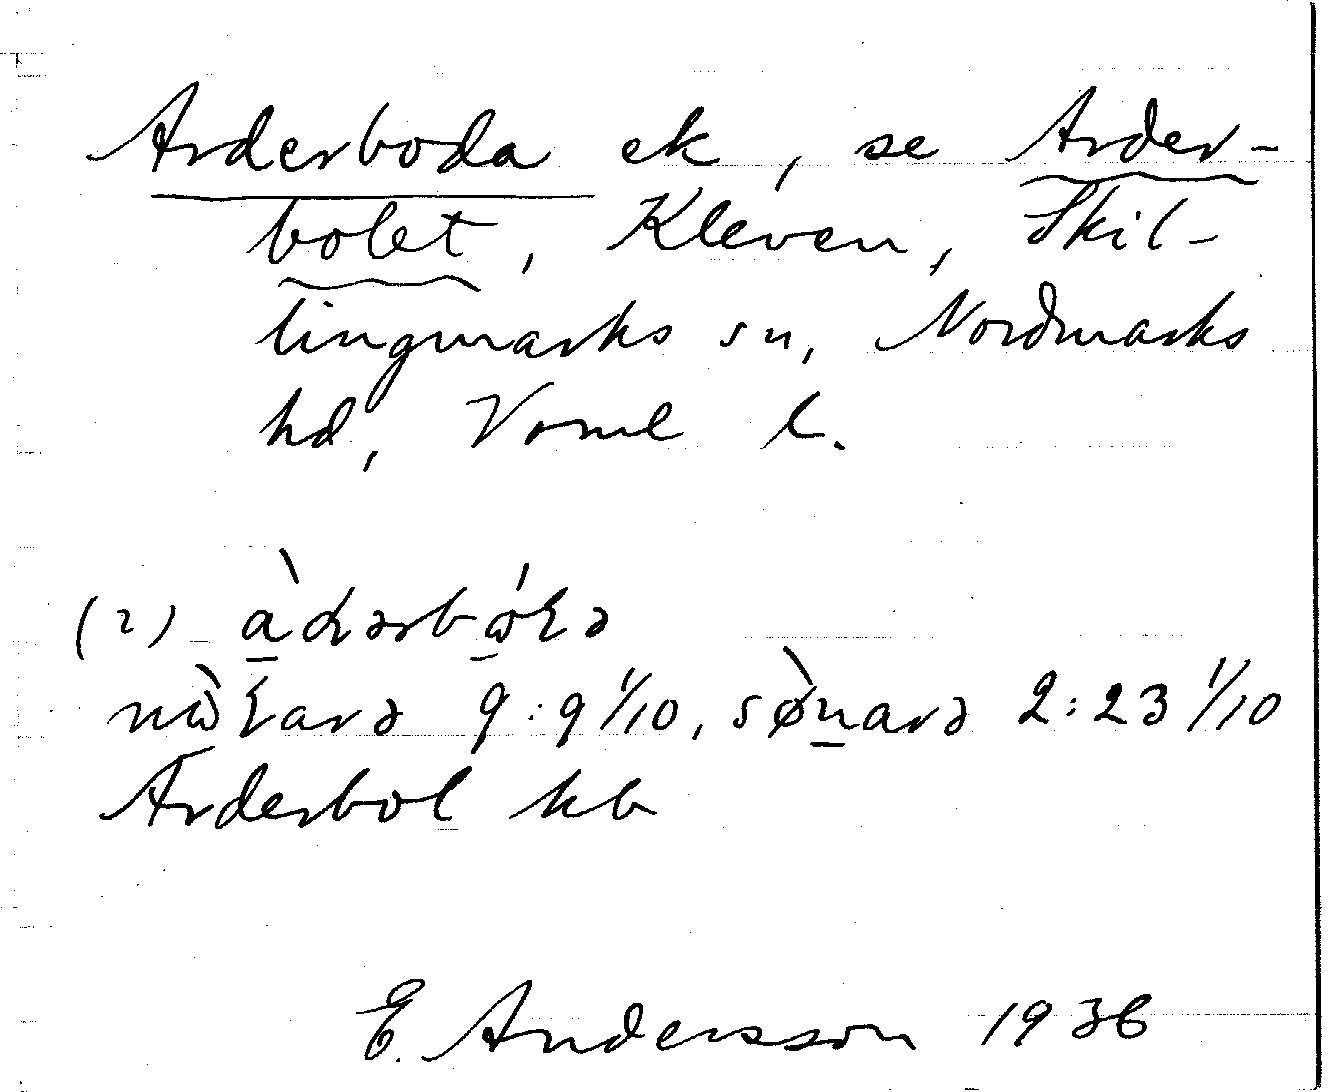 Arderboda ek, se Arder-
bolet, Kleven, Skil-
lingmarks sn, Nordmarks
hd, Vorml l.
(2) àdərbɷ́ɽə
nɷ̀ɽarə 9:9 1/10, sø̀narə 2:23 1/10
Arderbol kb
E. Andersson 1936